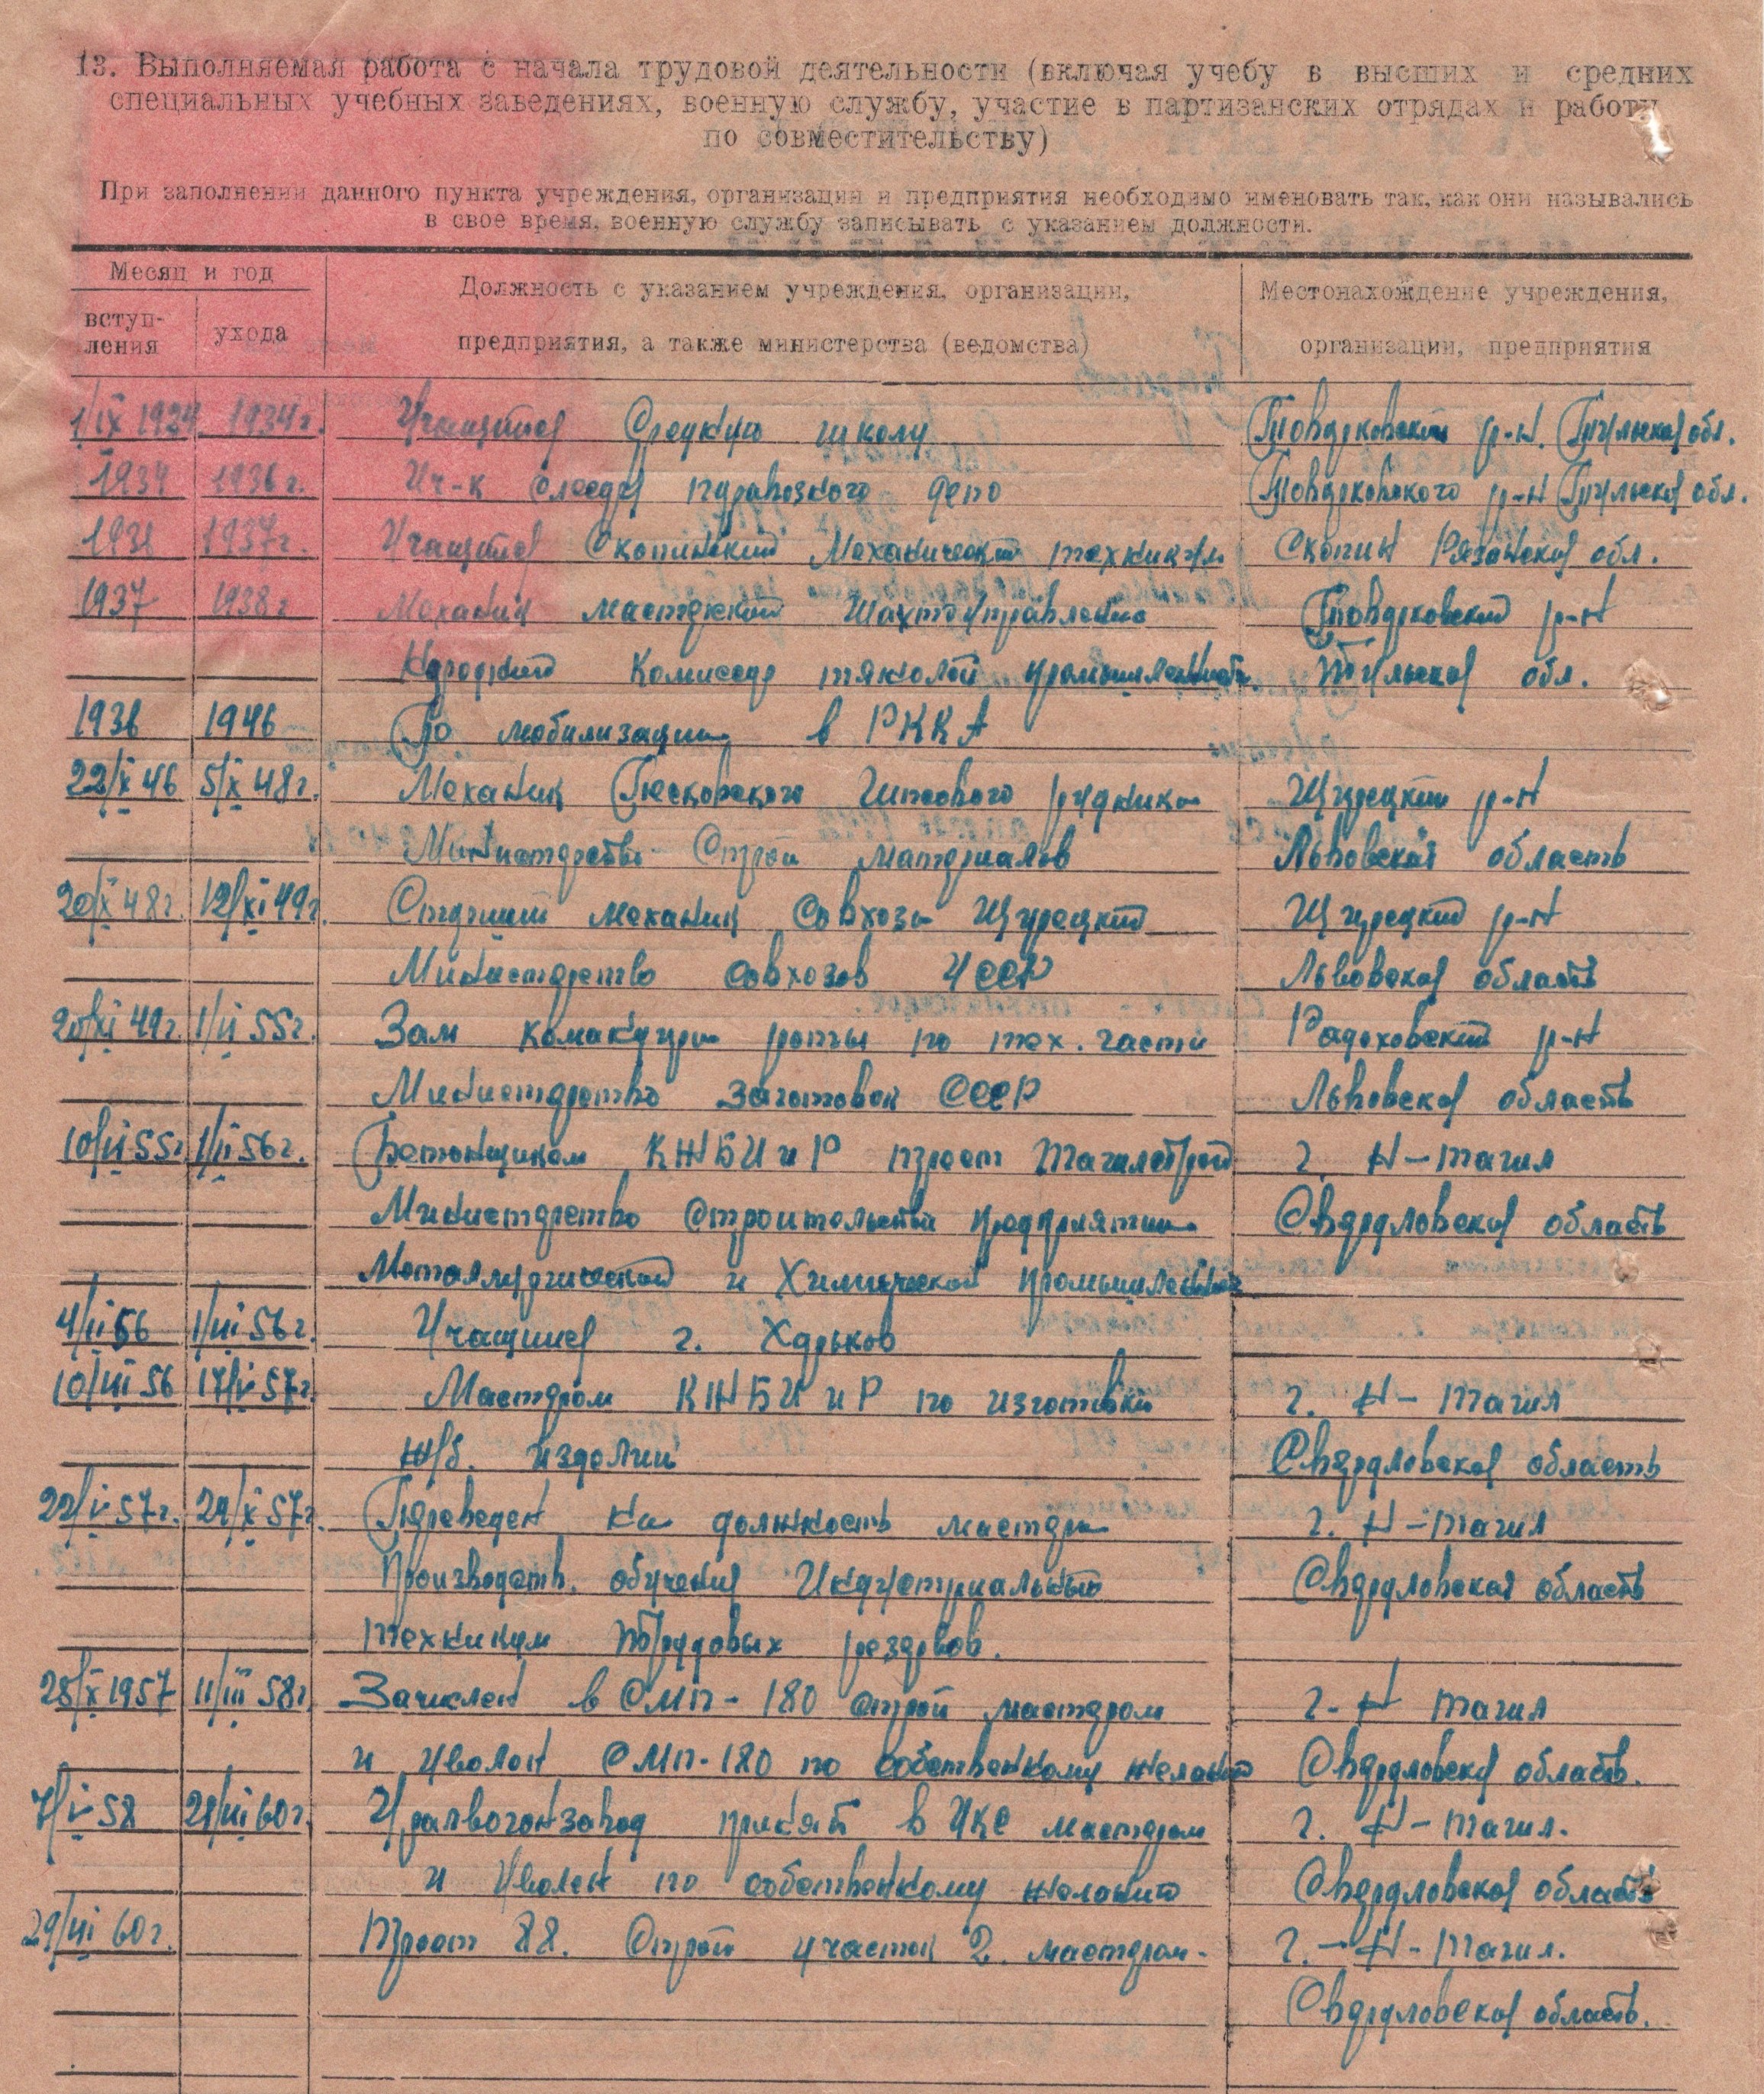 13. Выполняемая работа с начала трудовой деятельности (включая учебу в высших и средних
специальных учебных заведениях, военную службу, участие в партизанских отрядах и работу
по совместительству)
При заполнении данного пункта учреждения, организации и предприятия необходимо именовать так, как они назывались
в свое время, военную службу записывать с указанием должности.
Месяц и год
вступ-
ления
ухода
Должность с указанием учреждения, организации,
предприятия, а также министерства (ведомства)
Местонахождение учреждения,
организации, предприятия
1/IX 1924 1934г. Учащийся Среднюю школу Товарковский р-н. Тульская обл.
1934 1936 г. Уч-к слесаря паравозного депо Товарковского р-н Тульская обл.
1936 1937г. Учащийся Скопинский Механический техникум Скопин Рязанская обл.
1937 1938 г Механик мастерской Шахтоуправление Товарковский р-н
Народный Комиссар тяжолой промышленность Тульская обл.
1938 1946 По мобилизации в РККА
22/X 46 5/X 48г. Механик Песковского Гипсового рудника Щирецкий р-н
Министерства Строй материалов Львовская область
20/X 48г. 12/XI 49г. Старший механик совхоза Щирецкий Щирецкий р-н
Министерство совхозов УССР Львовская область
20/XI 49г. 1/II 55г. Зам командира роты по тех. части Радеховский р-н
Министерство Заготовок СССР Львовская область
10/II 55г 1/II 56г. Бетонщиком КЖБИ и Р трест Тагилстрой г. Н-Тагил
Министерство Строительства предприятии Свердловская область
Металлургической и Химической промышленности
4/II 56 1/III 56г. Учащийся г. Харьков
10/III 56 17/V 57г. Мастером КЖБИ и Р по изготовки г. Н-Тагил
ж/б. изделий Свердловская область
22/V 57г. 24/X 57г. Переведен на должность мастера г. Н-Тагил
Производств. обучения Индустриальный Свердловская область
техникум трудовых резервов.
25/X 1957 11/III 58г. Зачислен в СМП-180 строй мастером г. Н Тагил
и уволен СМП-180 по собственному желанию Свердловская область.
7/V 58 28/III 60г. Уралвагонзавод принят в УКС мастером г. Н-Тагил.
и Уволен по собственному желанию Свердловская область
29/III 60г. Трест 88. Строй участок 2. мастером. г. Н-Тагил.
Свердловская область.